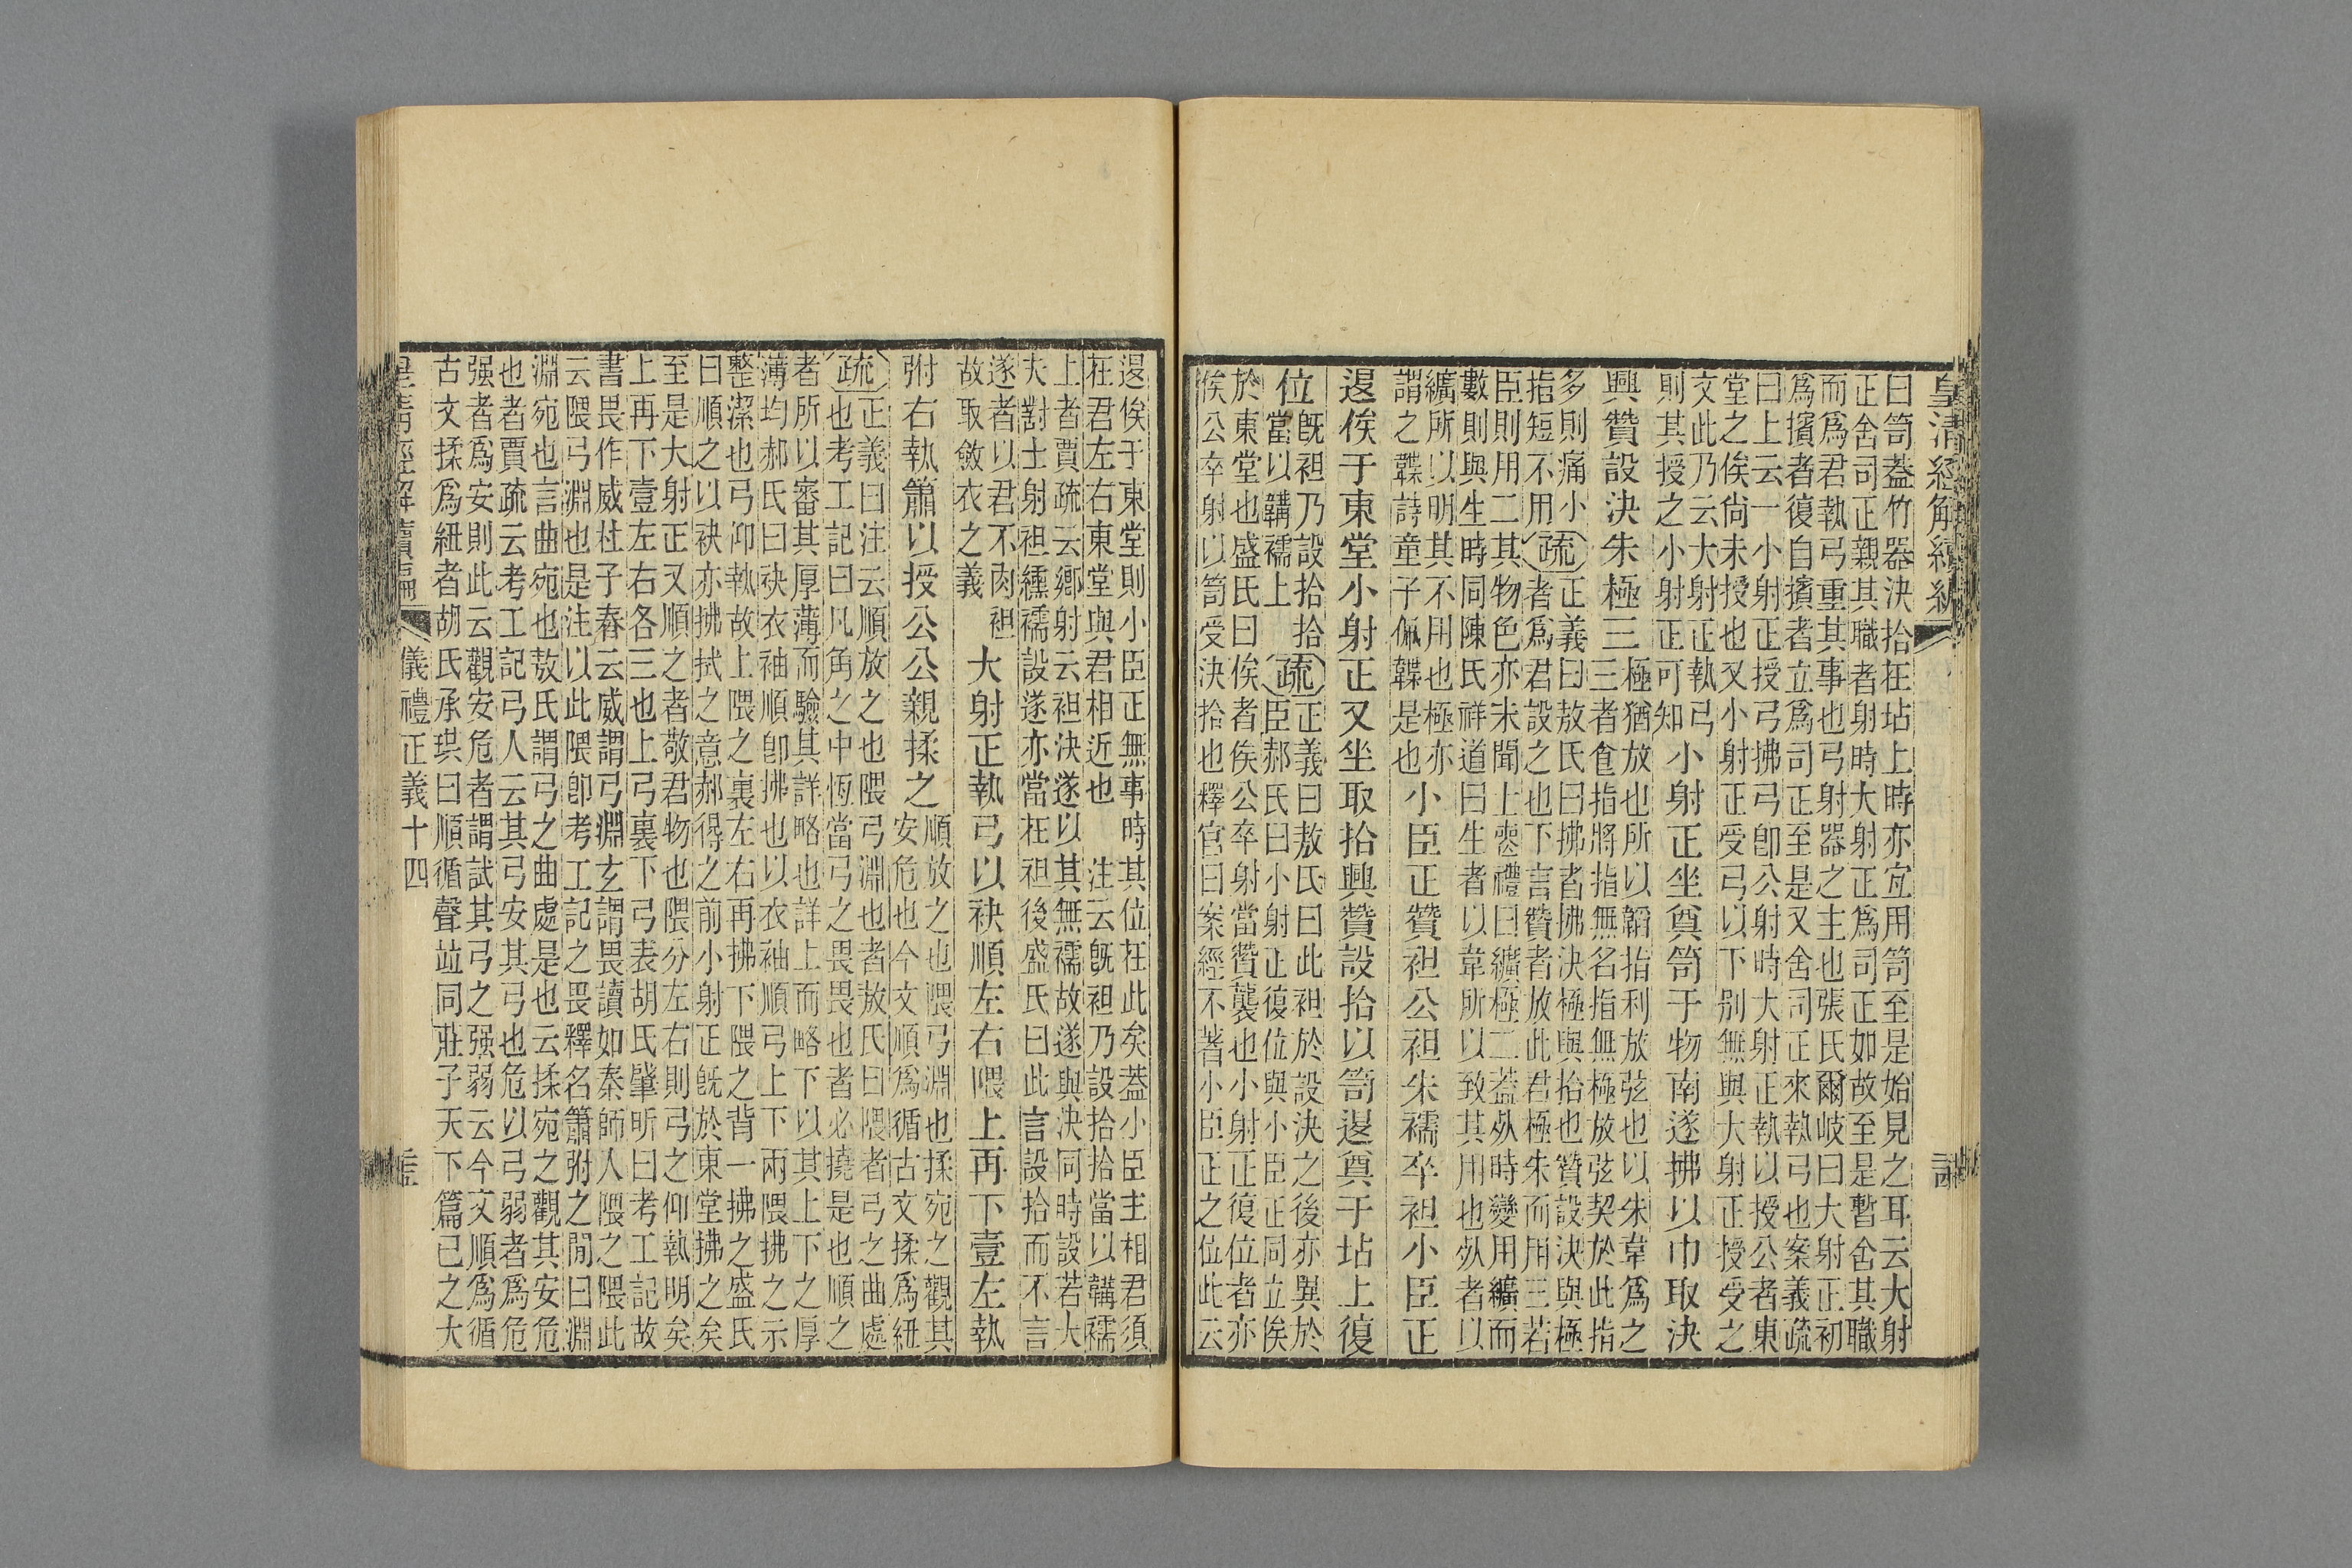 皇清經解續編
曰笥蓋竹器決拾在坫上時亦宜用笥至是始見之耳云大射
正舍司正親其職者射時大射正爲司正如故至是暫舍其職
而爲君執弓重其事也弓射器之主也張氏爾岐曰大射正初
爲擯者復自擯者立爲司正至是又舍司正來執弓也案義疏
曰上云一小射正授弓拂弓卽公射時大射正執以授公者東
堂之俟尚未授也又小射正受弓以下别無與大射正授受之
文此乃云大射正執弓
則其授之小射正可知
小射正坐奠笥于物南遂拂以巾取決
興贊設決朱極三
極猶放也所以韜指利放弦也以朱韋爲之
三者食指將指無名指無極放弦契於此指
多則痛小
指短不用
疏
正義曰敖氏曰拂者拂決極與拾也贊設決與極
者爲君設之也下言贊者放此君極朱而用三若
臣則用二其物色亦未聞士䘮禮曰纊極二蓋𣦸時變用纊而
數則與生時同陳氏祥道曰生者以韋所以致其用也𣦸者以
纊所以明其不用也極亦
謂之韘詩童子佩韘是也
小臣正贊袒公袒朱襦卒袒小臣正
退俟于東堂小射正又坐取拾興贊設拾以笥退奠于坫上復
位
旣袒乃設拾拾
當以韝襦上
疏
正義曰敖氏曰此袒於設決之後亦異於
臣郝氏曰小射正復位與小臣正同立俟
於東堂也盛氏曰俟者俟公卒射當贊襲也小射正復位者亦
俟公卒射以笥受決拾也釋官曰案經不著小臣正之位此云
退俟于東堂則小臣正無事時其位在此矣蓋小臣主相君須
在君左右東堂與君相近也 注云旣袒乃設拾拾當以韝襦
上者賈疏云鄉射云袒決遂以其無襦故遂與決同時設若大
夫對士射袒纁襦設遂亦當在袒後盛氏曰此言設拾而不言
遂者以君不肉袒
故取斂衣之義
大射正執弓以袂順左右隈上再下壹左執
弣右執簫以授公公親揉之
順放之也隈弓淵也揉宛之觀其
安危也今文順爲循古文揉爲紐
疏
正義曰注云順放之也隈弓淵也者敖氏曰隈者弓之曲處
也考工記曰凡角之中恆當弓之畏畏也者必撓是也順之
者所以審其厚薄而驗其詳略也詳上而略下以其上下之厚
薄均郝氏曰袂衣袖順卽拂也以衣袖順弓上下兩隈拂之示
整潔也弓仰執故上隈之裏左右再拂下隈之背一拂之盛氏
曰順之以袂亦拂拭之意郝得之前小射正旣於東堂拂之矣
至是大射正又順之者敬君物也隈分左右則弓之仰執明矣
上再下壹左右各三也上弓裏下弓表胡氏肇昕曰考工記故
書畏作威杜子春云威謂弓淵玄謂畏讀如秦師人隈之隈此
云隈弓淵也是注以此隈卽考工記之畏釋名簫弣之閒曰淵
淵宛也言曲宛也敖氏謂弓之曲處是也云揉宛之觀其安危
也者賈疏云考工記弓人云其弓安其弓也危以弓弱者爲危
强者爲安則此云觀安危者謂試其弓之强弱云今文順爲循
古文揉爲紐者胡氏承珙曰順循聲竝同莊子天下篇已之大
皇清經解續編 儀禮正義十四